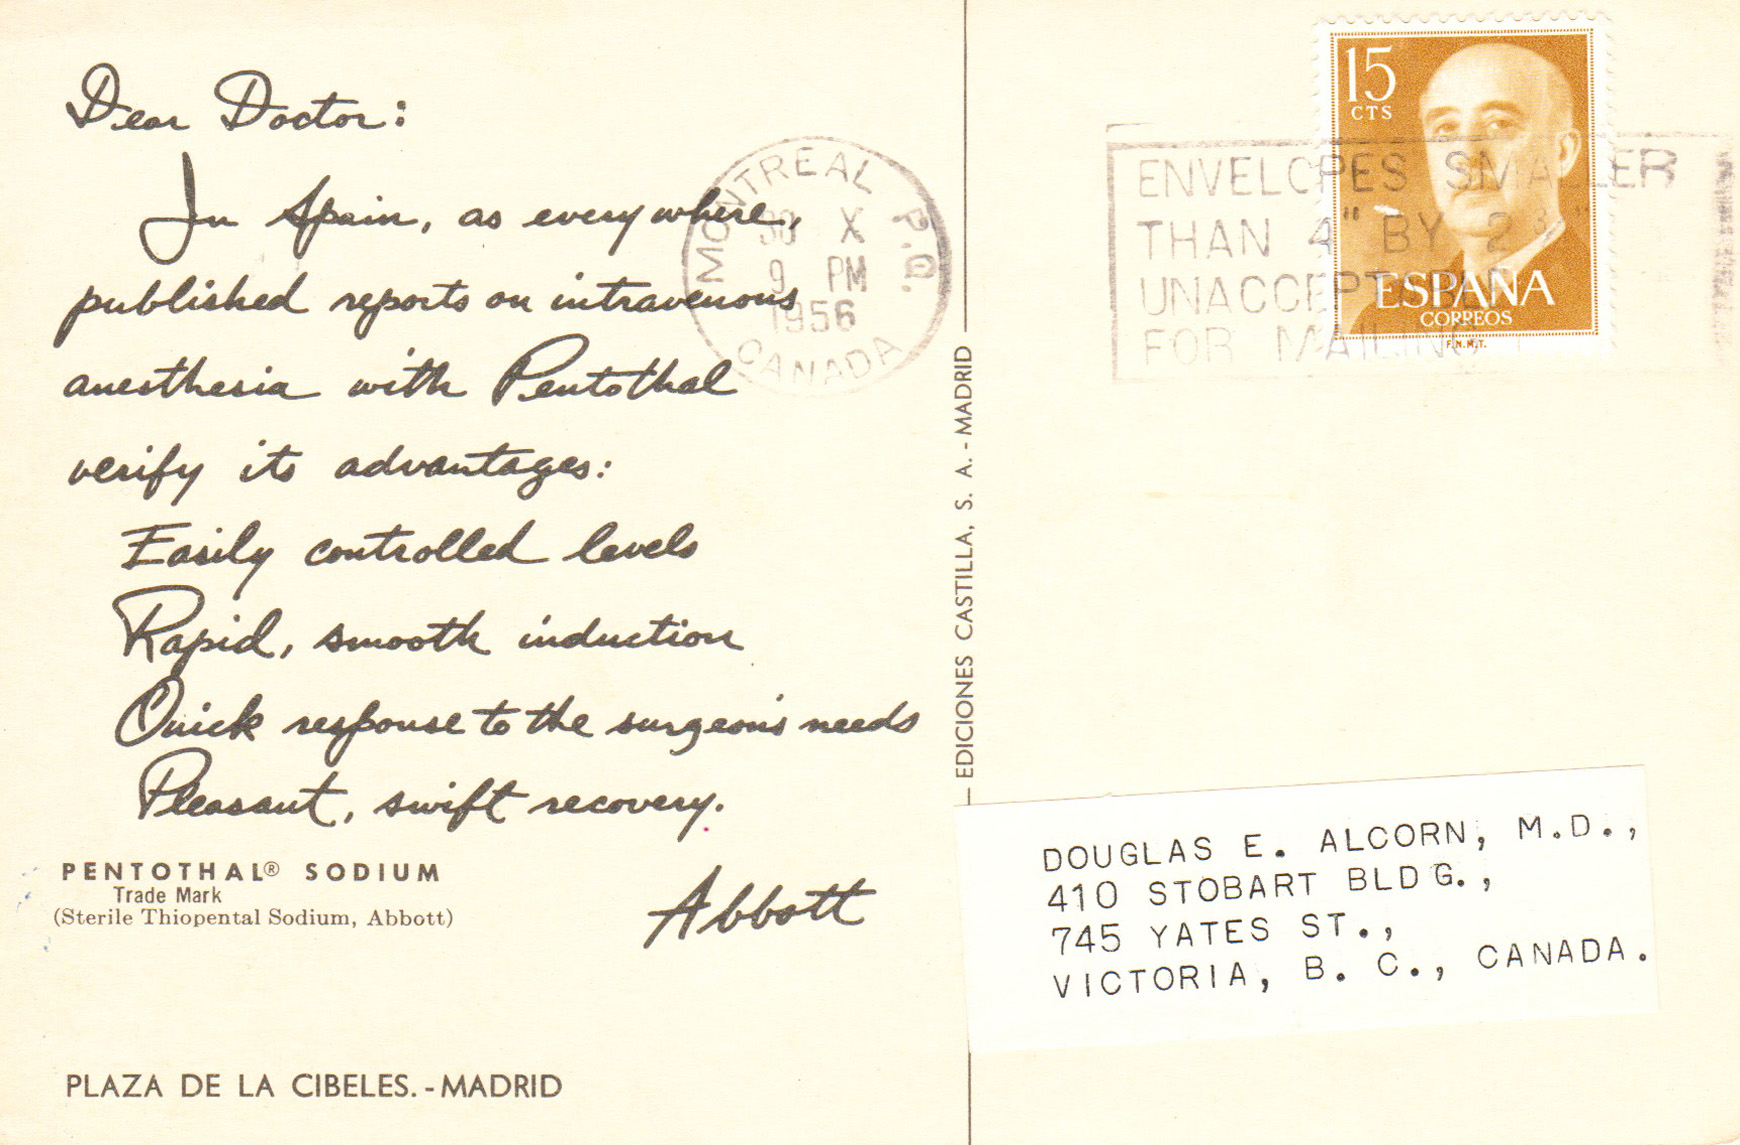 Dear Doctor:
In Spain, as everywhere,
published reports on intravenous
anesthesia with Pentothal
verify its advantages:
Easily controlled levels
Rapid, smooth induction
Quick response to the surgeon's needs
Pleasant, swift recovery.
Abbott
PENTOTHAL® SODIUM
Trade Mark
(Sterile Thiopental Sodium, Abbott)
PLAZA DE LA CIBELES.-MADRID
MONTREAL P.Q.
30 X
9 PM
1956
CANADA
EDICIONES CASTILLA, S. A.-MADRID
ENVELOPES SMALLER
THAN 4" BY 2
UNACCEPTABLE
FOR MAILING
15
CTS
ESPAÑA
CORREOS
F.N.M.T.
DOUGLAS E. ALCORN, M.D.,
410 STOBART BLDG.,
745 YATES ST.,
VICTORIA, B. C., CANADA.